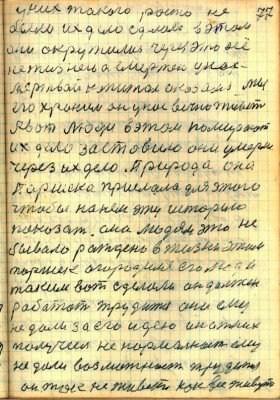 у них такого, росто не
было их дело сделало в этом
они окружили через это все
не жизнено а смертен у нас
мы
его хранили он у нас вечно живет
А вот люди в этом помирают
их дело заставило они умерли
через их дело. Природа она
Паршека прислала для этого
чтобы на нем эту историю
показат. она людям это не
бывало рождено в жизни этим
паршек огородили его люди
таким вот сделали он должен
работат трудится они ему
не дали за его идею он от них
получил не нормалност ему
не дали возможност трудится
он тоже не живет как все живут